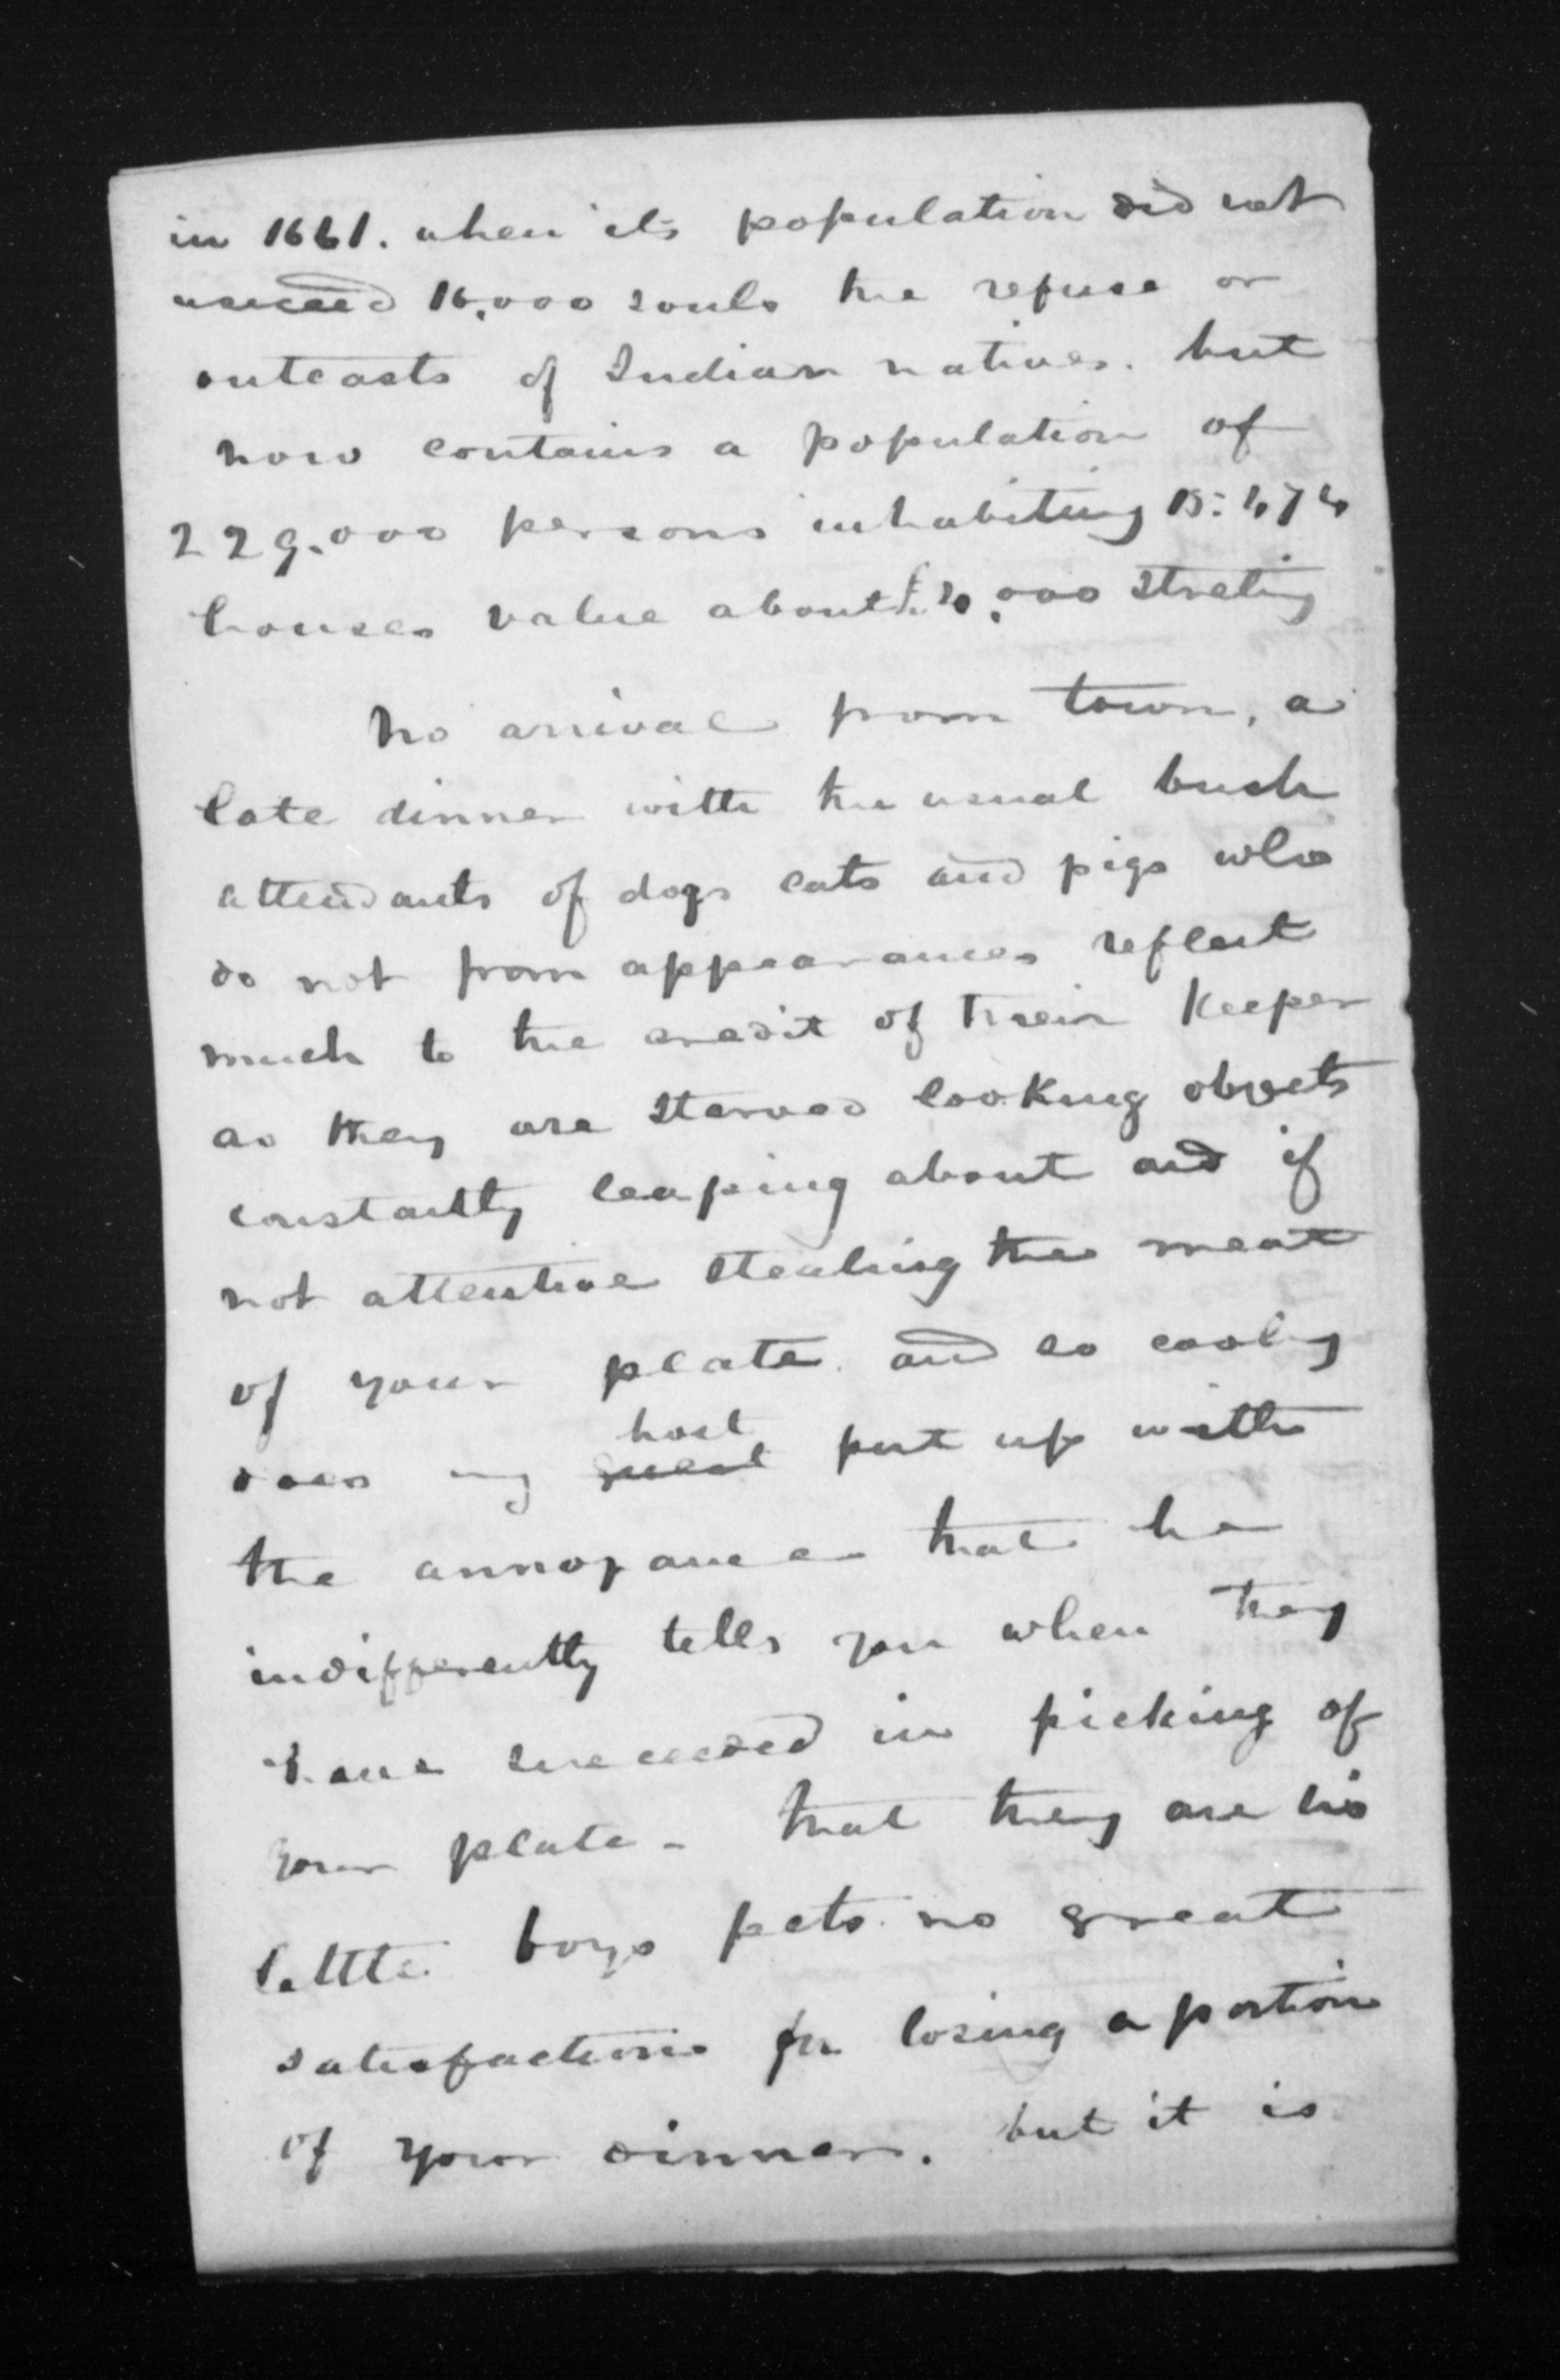 in 1661. when its population did not
exceed 16,000 souls the refuse or
outcasts of Indian natives. but
now contains a population of
229.000 persons inhabiting
houses value about
No arrival from town, a
late dinner with the usual bush
attendants of dogs cats and pigs who
do not from appearances reflect
much to the credit of their Keeper
as they are starved looking objects
constantly leaping about and if
not attentive stealing the meat
of your plate. and so cooly
does my guest host put up with
the annoyance that he
indifferently tells you when they
have succeeded in picking of
your plate - that they are his
little boys pets. no great
satisfaction for losing a portion
of your dinner. but it is